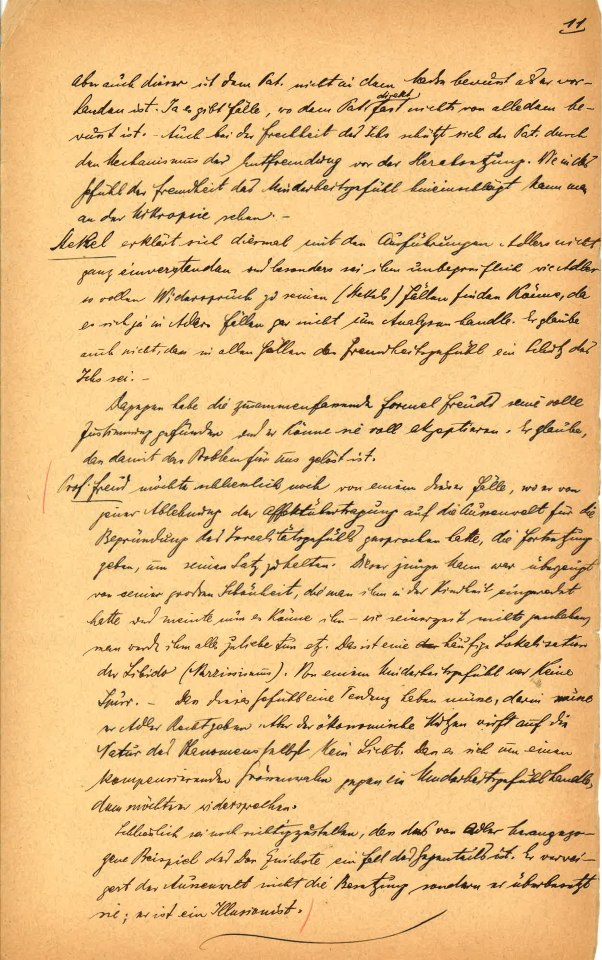 11
aber auch dieser ist dem Pat. nicht in dem bewusst als er vor-
handen ist. Ja es gibt Fälle, wo dem Pat. fast direkt nichts von alledem be-
wusst ist. - Auch bei der Frechheit des Ichs schützt sich der Pat. durch
den Mechanismus der Entfremdung vor der Herabsetzung. Wie in das
Gefühl der Fremdheit das Minderheitsgefühl hineinschlägt kann man
an der Mikropsie sehen. -
Stekel erklärt sich diesmal mit den Ausführungen Adlers nicht
ganz einverstanden und besonders sei ihm unbegreiflich wie Adler
so vollen Widerspruch zu seinen (Stekels) Fällen finden könne, da
es sich ja in Adlers Fällen gar nicht um Analysen handle. Er glaube
auch nicht, dass in allen Fällen das Fremdheitsgefühl ein Schutz des
Ichs sei. -
Dagegen habe die zusammenfassende Formel Freuds seine volle
Zustimmung gefunden und er könne sie voll akzeptieren. Er glaube,
dass damit das Problem für uns gelöst ist.
Prof. Freud möchte schliesslich noch von einem dieser Fälle, wo er von
jener Ablehnung der Affektübertragung auf die Aussenwelt für die
Begründung des Irrealitätsgefühls gesprochen hatte, die Fortsetzung
geben, um seinen Satz zu halten. Dieser junge Mann war überzeugt
von seiner grossen Schönheit, die man ihm in der Kindheit eingeredet
hatte und meinte nun es könne ihm - wie seinerzeit nichts
man werde ihm alles zuliebe tun etz. Das ist eine häufige Lokalisation
der Libido (Narzissismus). Von einem Minderheitsgefühl war keine
Spur. - Dass dieses Gefühl eine Tendenz haben müsse, darin müsse
er Adler Recht geben. Aber der ökonomische Nutzen wirft auf die
Natur des Phenomens selbst kein Licht. Dass es sich um einen
kompensierenden Grössenwahn gegen ein Minderheitsgefühl handle,
dem möchte er widersprechen.
Schliesslich sei noch richtigzustellen, dass das von Adler herangezo-
gene Beispiel des Don Quichote ein Fall des Gegenteils ist. Er verwei-
gert der Aussenwelt nicht die Besetzung sondern er überbesetzt
sie; er ist ein Illusionist.